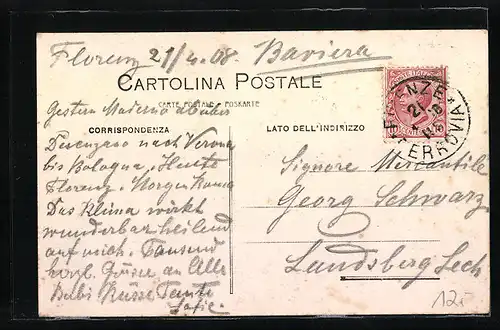 Florenz 21/4.08. Baviera
CARTOLINA POSTALE
CARTE POSTALE - POSTKARTE
CORRISPONDENZA
LATO DELL'INDIRIZZO
FIRENZE
FERROVIA
21
Gestern Moderno
nach Verona
bis Bologna. Heute
Florenz. Morgen
Das Klima wirkt
wunderbar heilend
auf mich. Tausend
herzl. Grüsse an Alle
Küsse Tante
Signore Mercantile
Georg Schwarz
Landsberg Lech
12.-